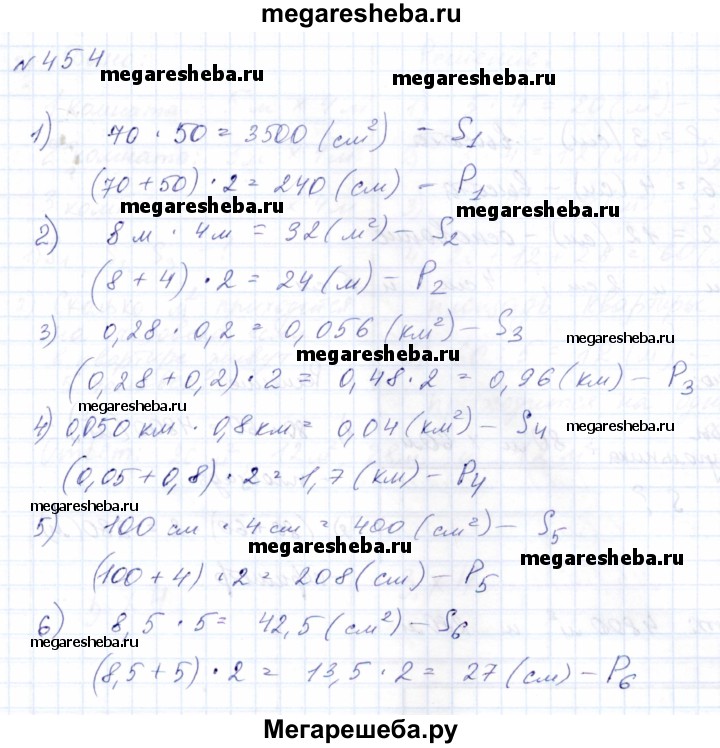 megaresheba.ru
№454
megaresheba.ru megaresheba.ru
1) 70 · 50 = 3500 (см²) – S₁
(70+50) · 2 = 240 (см) – P₁
megaresheba.ru megaresheba.ru
2) 8 м · 4м = 32 (м²) – S₂
(8 + 4) · 2 = 24 (м) – P₂
3) 0,28 · 0,2 = 0,056 (км²) – S₃
megaresheba.ru megaresheba.ru
(0,28 + 0,2) · 2 = 0,48 · 2 = 0,96 (км) – P₃
megaresheba.ru
4) 0,050 км · 0,8 км = 0,04 (км²) – S₄
megaresheba.ru
(0,05 + 0,8) · 2 = 1,7 (км) – P₄
megaresheba.ru
5) 100 см · 4 см = 400 (см²) – S₅
megaresheba.ru megaresheba.ru
(100 + 4) · 2 = 208 (см) – P₅
6) 8,5 · 5 = 42,5 (см²) – S₆
megaresheba.ru megaresheba.ru
(8,5 + 5) · 2 = 13,5 · 2 = 27 (см) – P₆
Мегарешеба.ру